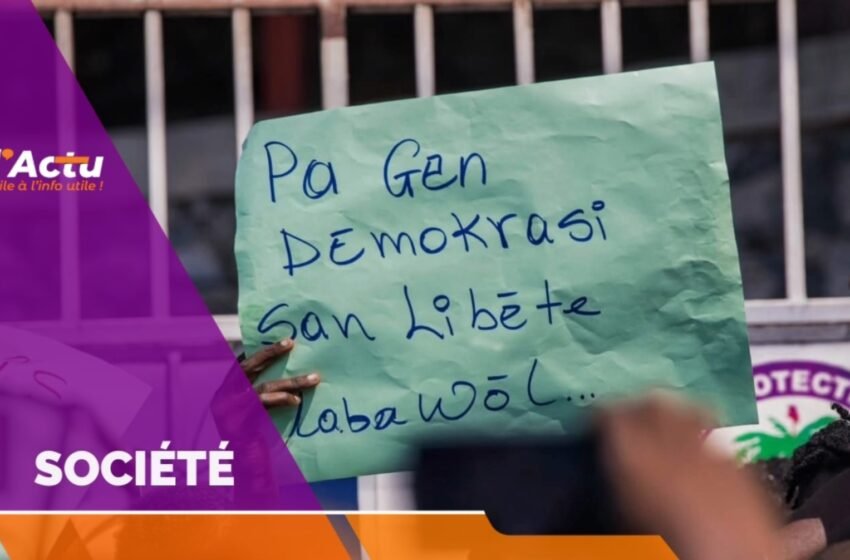 'Actu
ile à l'info utile !
Pa Gen
DEmokrasi
San Libēte
Laba wōl...
OTECT
SOCIÉTÉ